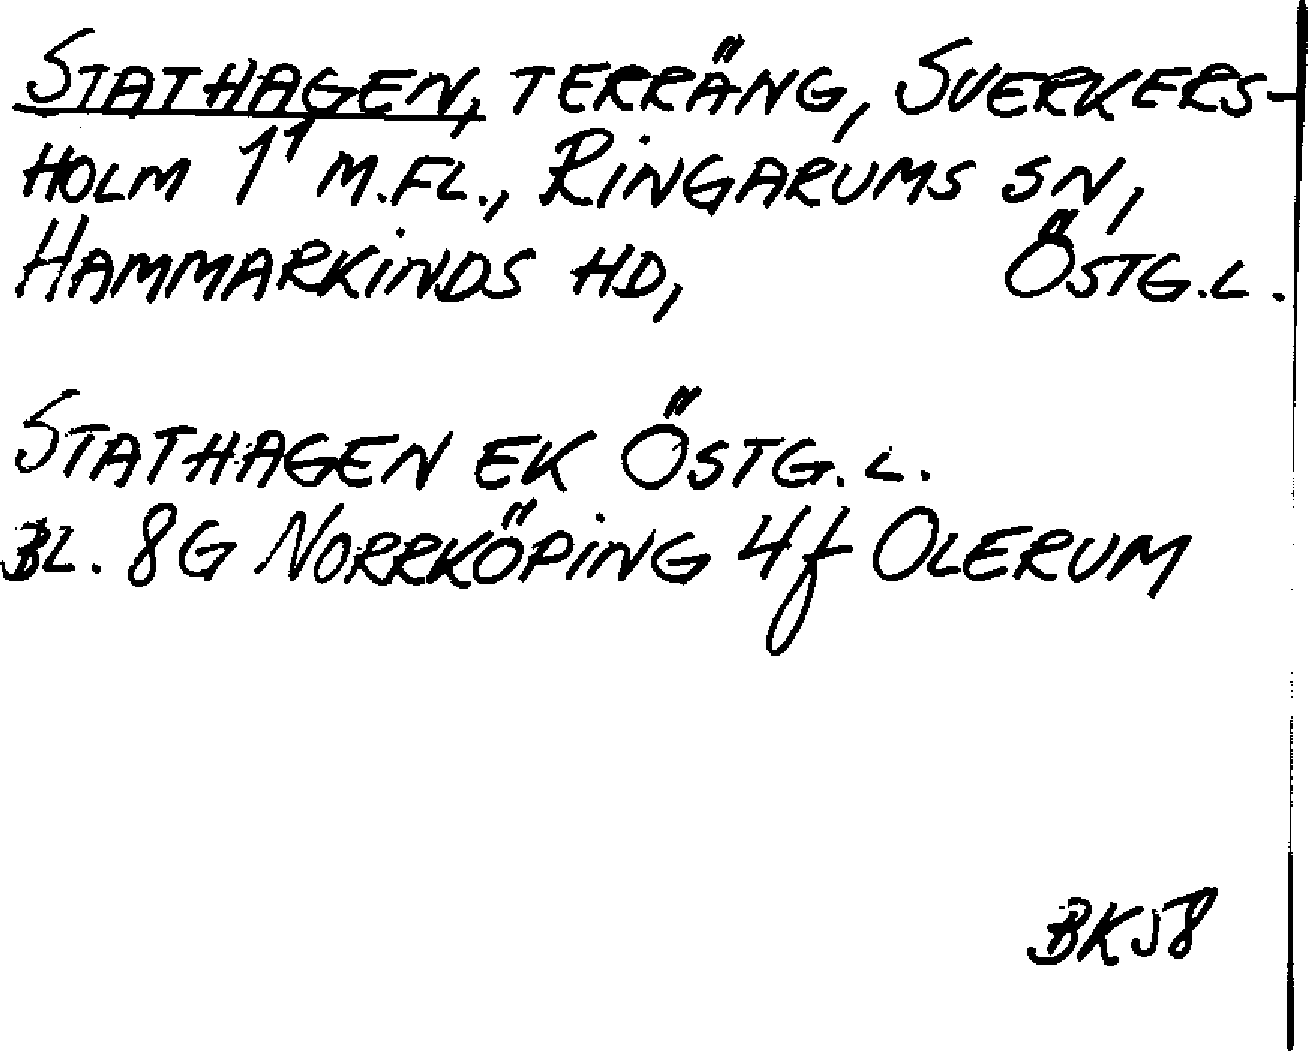 STATHAGEN, TERRÄNG, SVERKERS-
HOLM 1¹ M.FL., RINGARUMS SN,
HAMMARKINDS HD, ÖSTG.L.
STATHAGEN EK ÖSTG.L.
BL. 8G NORRKÖPING 4f OLERUM
BK58